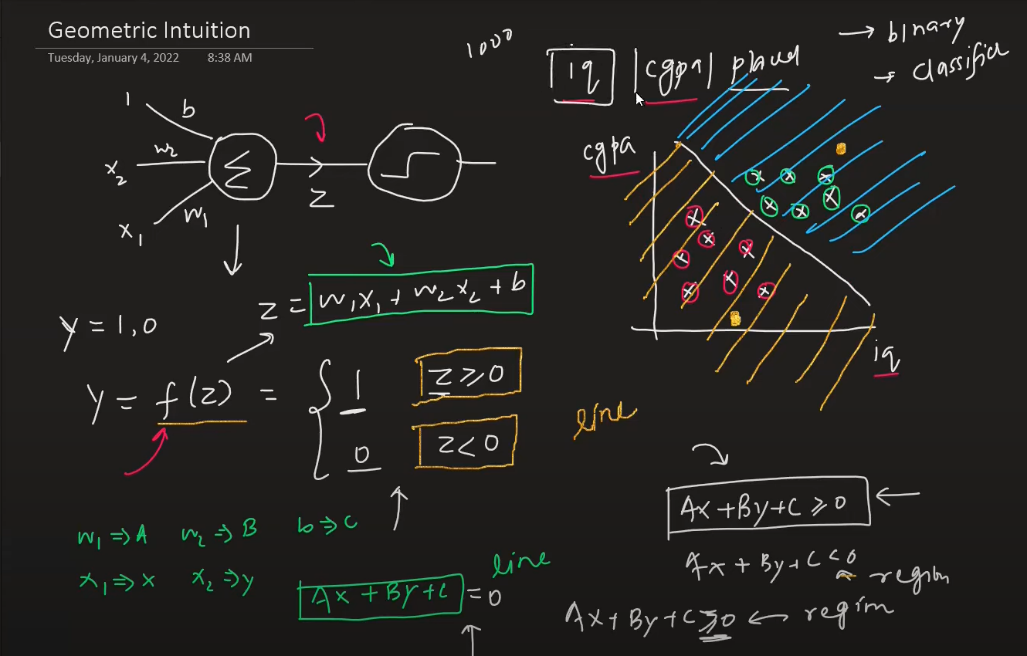 Geometric Intuition
Tuesday, January 4, 2022 8:38 AM
1000
iq | cgpa | placed
→ binary
→ classifier
1 b
x₂ w₂ Σ
x₁ w₁
z
cgpa
iq
z = w₁x₁ + w₂x₂ + b
y = 1,0
y = f(z) = { 1 z ≥ 0
0 z < 0
line
w₁ ⇒ A w₂ ⇒ B b ⇒ C
x₁ ⇒ x x₂ ⇒ y
Ax + By + C = 0 line
Ax + By + C ≥ 0 ←
Ax + By + C < 0 → region
Ax + By + C ≥ 0 ← region